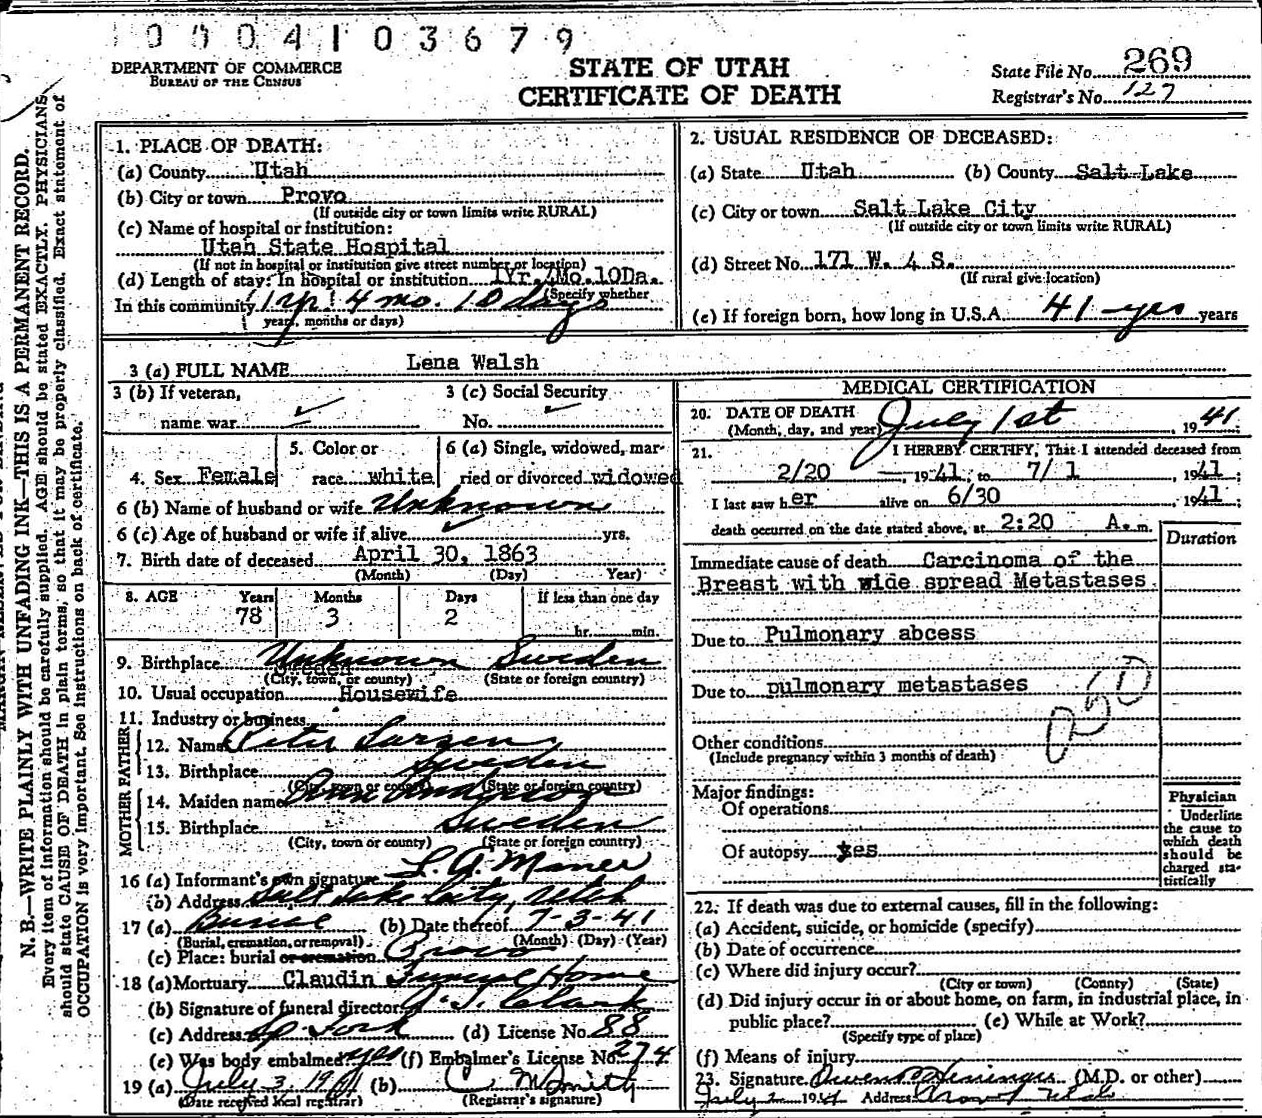 0 0 0 4 1 0 3 6 7 9
DEPARTMENT OF COMMERCE
BUREAU OF THE CENSUS
STATE OF UTAH
CERTIFICATE OF DEATH
State File No. 269
Registrar's No. 127
N. B.—WRITE PLAINLY WITH UNFADING INK—THIS IS A PERMANENT RECORD.
Every item of information should be carefully supplied. AGE should be stated EXACTLY. PHYSICIANS
should state CAUSE OF DEATH in plain terms, so that it may be properly classified. Exact statement of
OCCUPATION is very important. See instructions on back of certificate.
1. PLACE OF DEATH:
(a) County Utah
(b) City or town Provo
(If outside city or town limits write RURAL)
(c) Name of hospital or institution:
Utah State Hospital
(If not in hospital or institution give street number or location)
(d) Length of stay: In hospital or institution 1Yr. 4Mo. 10Da.
(Specify whether
In this community 1 yr. 4 mo. 10 days
years, months or days)
2. USUAL RESIDENCE OF DECEASED:
(a) State Utah (b) County Salt Lake
(c) City or town Salt Lake City
(If outside city or town limits write RURAL)
(d) Street No. 171 W. 4 S.
(If rural give location)
(e) If foreign born, how long in U.S.A. 41 yes years
3 (a) FULL NAME Lena Walsh
3 (b) If veteran,
name war
3 (c) Social Security
No.
4. Sex Female
5. Color or
race white
6 (a) Single, widowed, mar-
ried or divorced widowed
6 (b) Name of husband or wife Unknown
6 (c) Age of husband or wife if alive yrs.
7. Birth date of deceased April 30, 1863
(Month) (Day) Year)
8. AGE Years Months Days If less than one day
78 3 2 hr. min.
9. Birthplace Unknown Sweden
Sweden
(City, town, or county) (State or foreign country)
10. Usual occupation Housewife
11. Industry or business
FATHER
12. Name Peter Larsen
13. Birthplace Sweden
(City, town or county) (State or foreign country)
MOTHER
14. Maiden name Ann Anderson
15. Birthplace Sweden
(City, town or county) (State or foreign country)
16 (a) Informant's own signature L. A. Maner
(b) Address Salt Lake City, Utah
17 (a) Burial (b) Date thereof 7-3-41
(Burial, cremation, or removal) (Month) (Day) (Year)
(c) Place: burial or cremation Provo
18 (a) Mortuary Claudin Funeral Home
(b) Signature of funeral director A. T. Clark
(c) Address Sp Fork (d) License No. 88
(e) Was body embalmed yes (f) Embalmer's License No. 274
19 (a) July 3, 1941 (b) Smith
(Date received local registrar) (Registrar's signature)
MEDICAL CERTIFICATION
20. DATE OF DEATH
(Month, day, and year) July 1st, 1941;
21. I HEREBY CERTIFY, That I attended deceased from
2/20, 1941, to 7/1, 1941;
I last saw her alive on 6/30 1941;
death occurred on the date stated above, at 2:20 A.m.
Duration
Immediate cause of death Carcinoma of the
Breast with wide spread Metastases.
Due to Pulmonary abcess
Due to pulmonary metastases
050
Other conditions
(Include pregnancy within 3 months of death)
Major findings:
Of operations
Of autopsy yes
Physician
Underline
the cause to
which death
should be
charged sta-
tistically
22. If death was due to external causes, fill in the following:
(a) Accident, suicide, or homicide (specify)
(b) Date of occurrence
(c) Where did injury occur?
(City or town) (County) (State)
(d) Did injury occur in or about home, on farm, in industrial place, in
public place? (e) While at Work?
(Specify type of place)
(f) Means of injury
23. Signature Owen Heninger (M.D. or other)
July 2 1941 Address Provo Utah